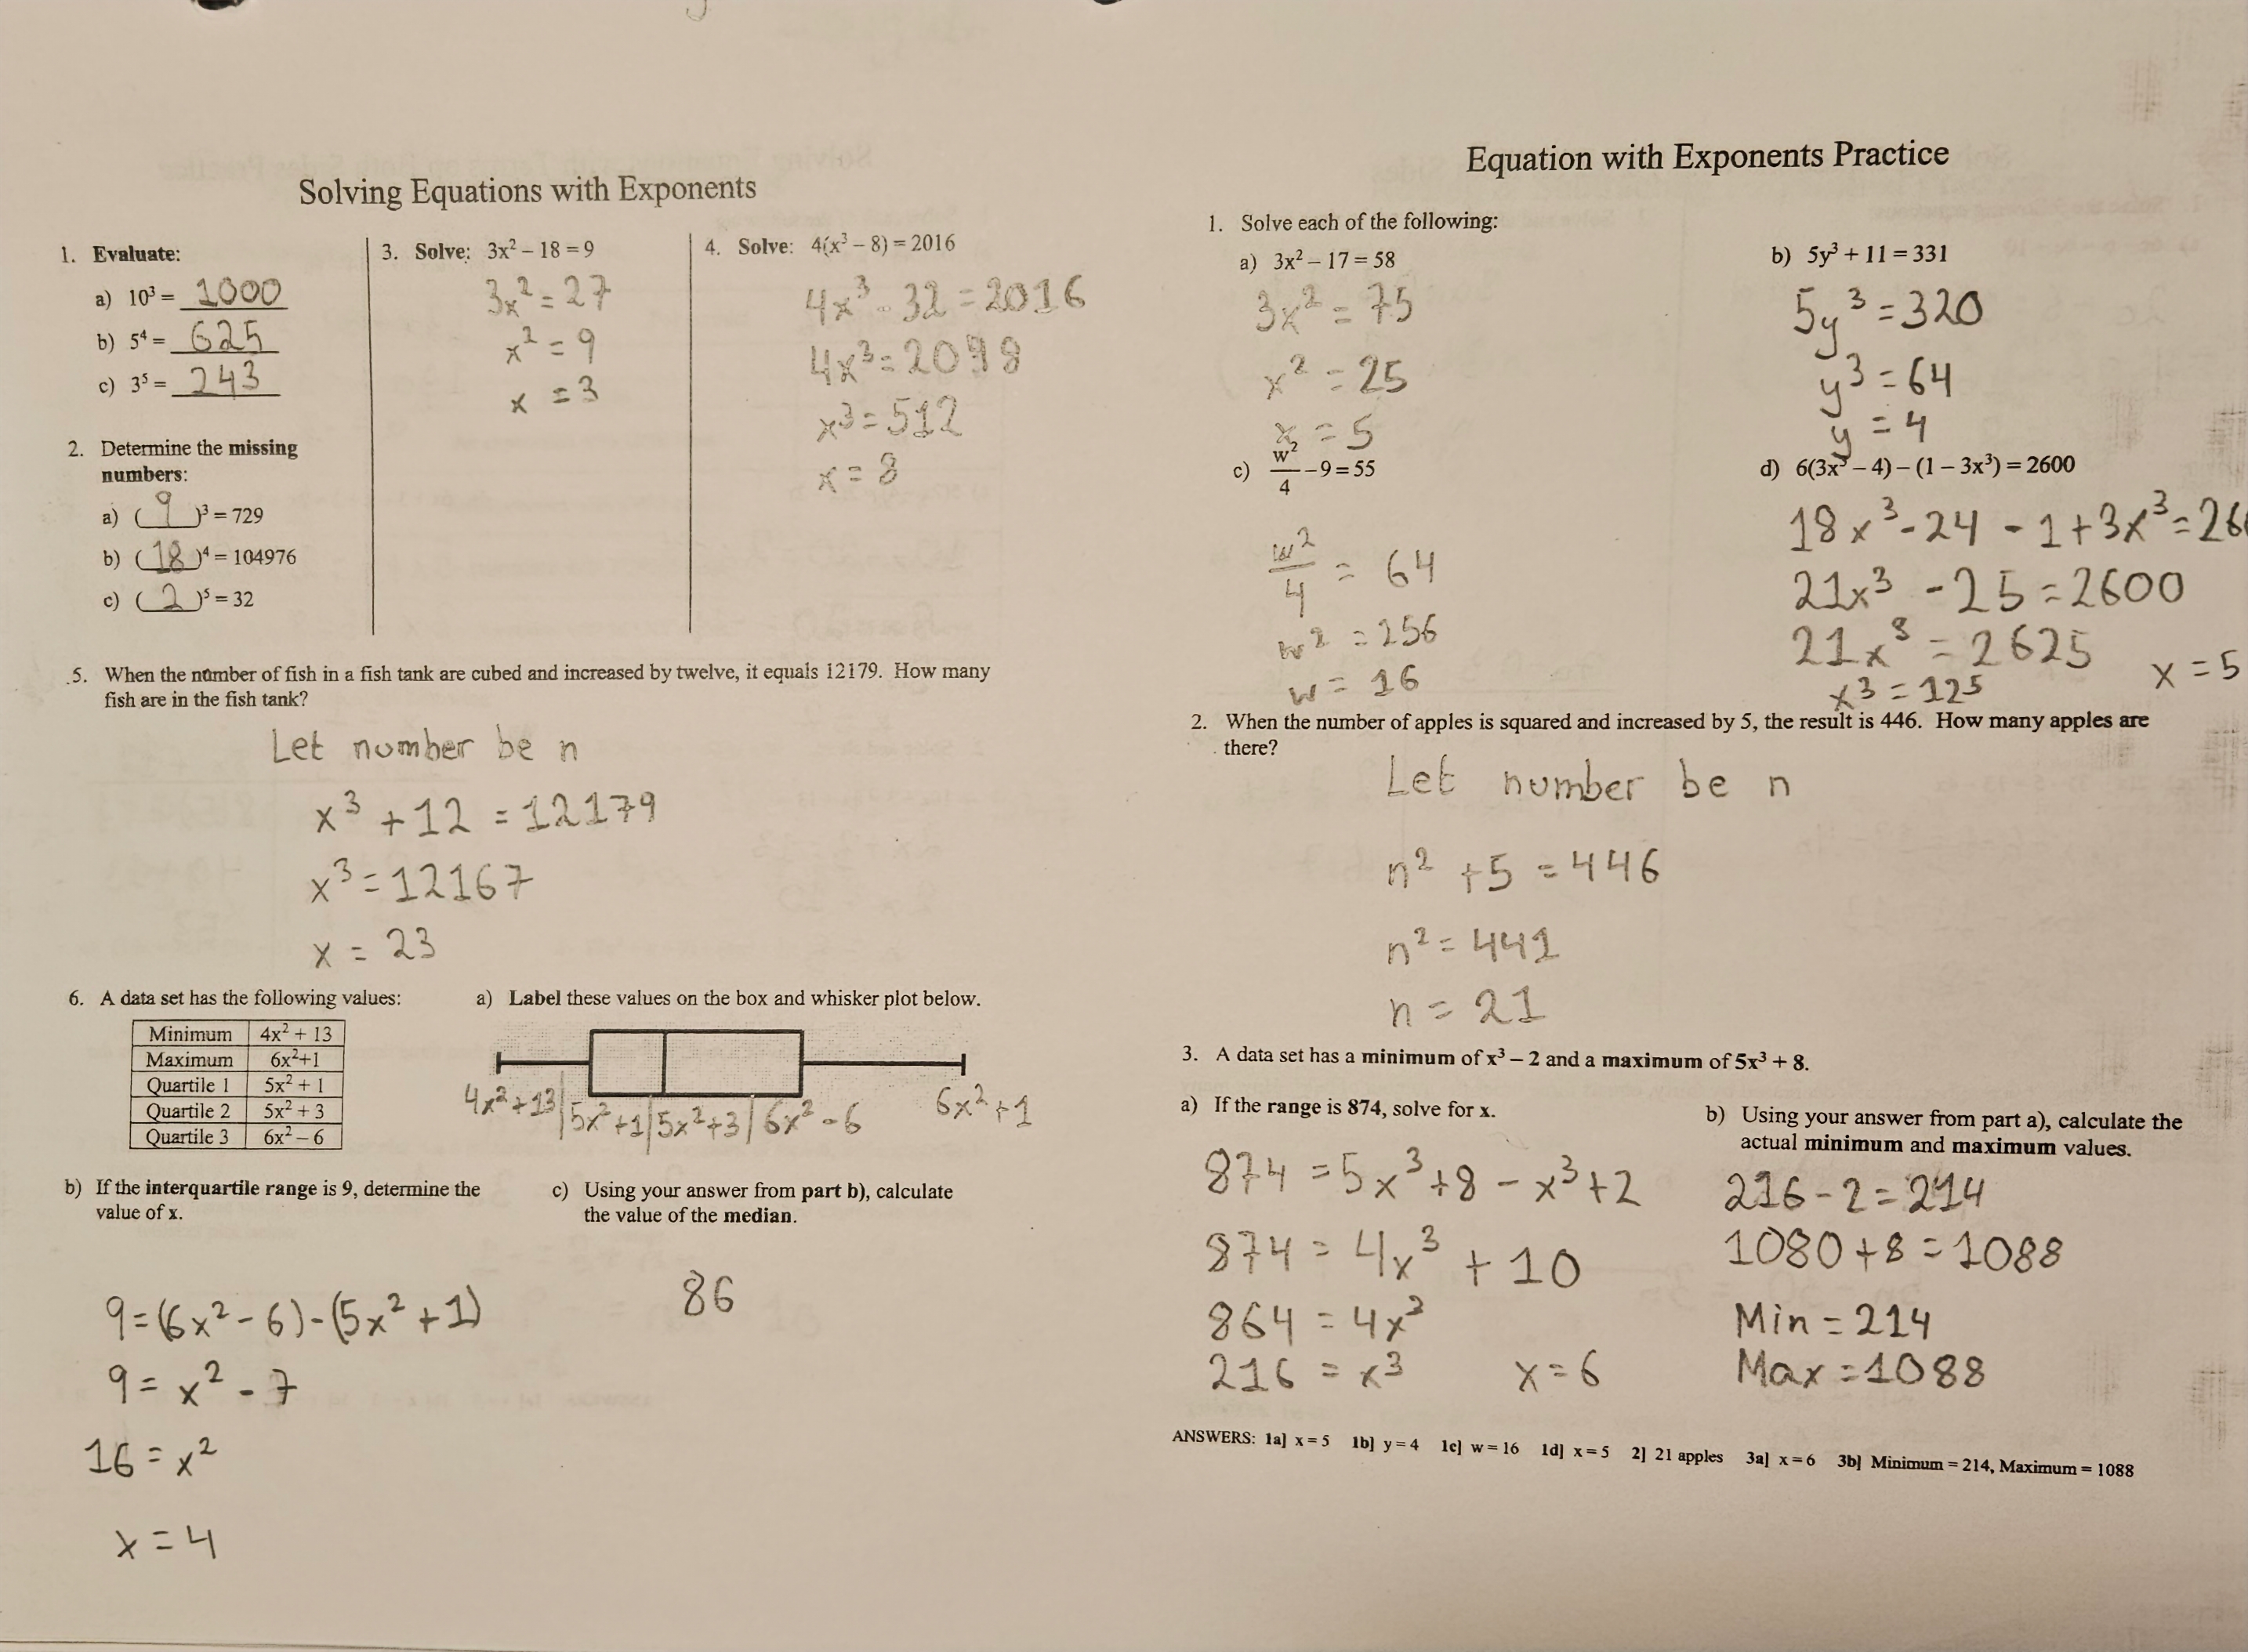 Solving Equations with Exponents
1. Evaluate:
a) 10³ = 1000
b) 5⁴ = 625
c) 3⁵ = 243
2. Determine the missing
numbers:
a) (9)³ = 729
b) (18)⁴ = 104976
c) (2)⁵ = 32
3. Solve: 3x² – 18 = 9
3x² = 27
x² = 9
x = 3
4. Solve: 4(x³ – 8) = 2016
4x³ - 32 = 2016
x³ = 512
x = 8
5. When the number of fish in a fish tank are cubed and increased by twelve, it equals 12179. How many
fish are in the fish tank?
Let number be n
x³ + 12 = 12179
x³ = 12167
x = 23
6. A data set has the following values:
Minimum 4x² + 13
Maximum 6x²+1
Quartile 1 5x² + 1
Quartile 2 5x² + 3
Quartile 3 6x² – 6
a) Label these values on the box and whisker plot below.
4x²+13 | 5x²+1 | 5x²+3 | 6x²-6 6x²+1
b) If the interquartile range is 9, determine the
value of x.
9=(6x²-6)-(5x²+1)
9 = x² - 7
16 = x²
x = 4
c) Using your answer from part b), calculate
the value of the median.
86
Equation with Exponents Practice
1. Solve each of the following:
a) 3x² – 17 = 58
3x² = 75
x² = 25
x = 5
b) 5y³ + 11 = 331
5y³ = 320
y³ = 64
y = 4
c) w²/4 – 9 = 55
w²/4 = 64
w² = 256
w = 16
d) 6(3x³ – 4) – (1 – 3x³) = 2600
18x³ - 24 - 1 + 3x³ = 26
21x³ - 25 = 2600
21x³ = 2625
x³ = 125
x = 5
2. When the number of apples is squared and increased by 5, the result is 446. How many apples are
there?
Let number be n
n² + 5 = 446
n² = 441
n = 21
3. A data set has a minimum of x³ – 2 and a maximum of 5x³ + 8.
a) If the range is 874, solve for x.
874 = 5x³ + 8 - x³ + 2
874 = 4x³ + 10
864 = 4x³
216 = x³ x = 6
b) Using your answer from part a), calculate the
actual minimum and maximum values.
216 - 2 = 214
1080 + 8 = 1088
Min = 214
Max = 1088
ANSWERS: 1a] x = 5 1b] y = 4 1c] w = 16 1d] x = 5 2] 21 apples 3a] x = 6 3b] Minimum = 214, Maximum = 1088